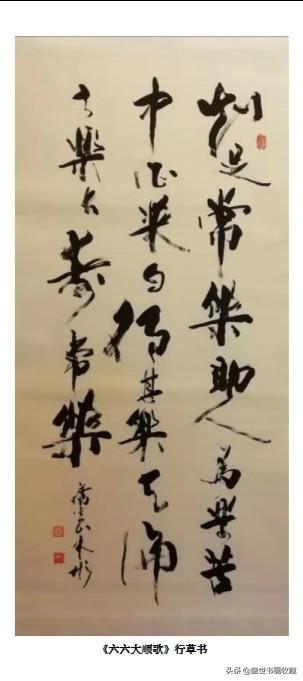 知足常樂助人為樂苦
中作樂自得其樂天倫
之樂长寿常樂
《六六大顺歌》行草书
头条 @盛世书画收藏